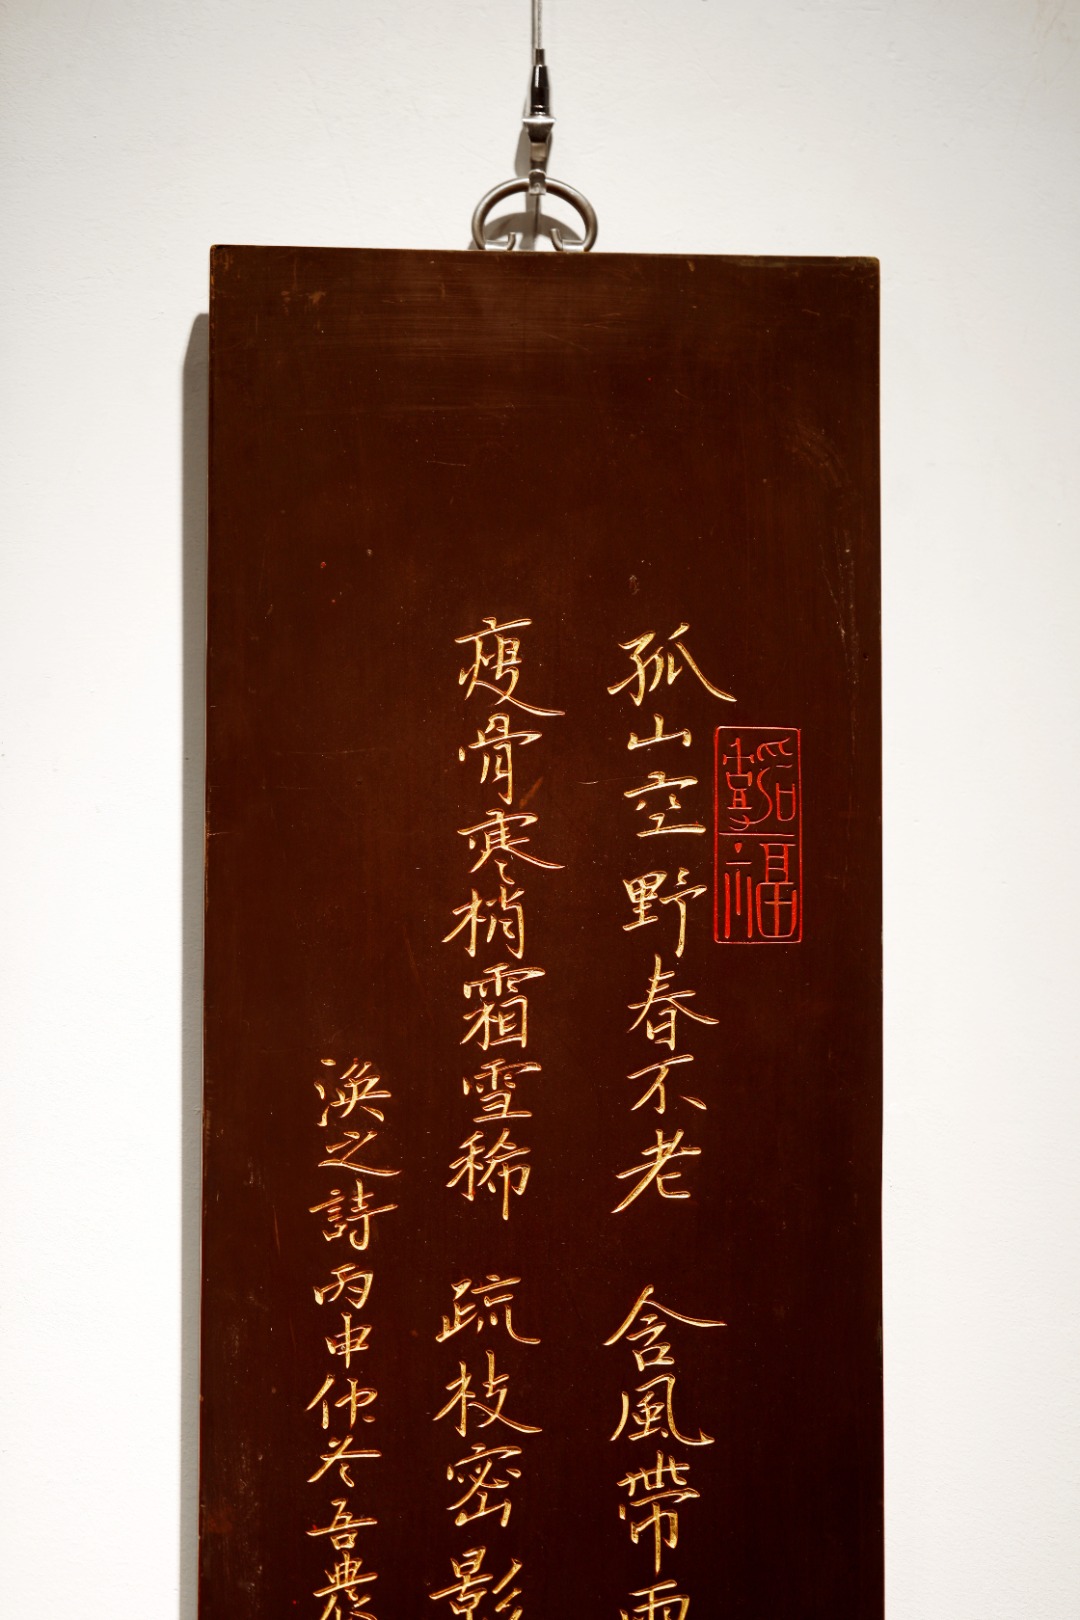 孤山空野春不老 含風帶雨
瘦骨寒梢霜雪稀 疏枝密影
渙之詩丙申仲冬吾典